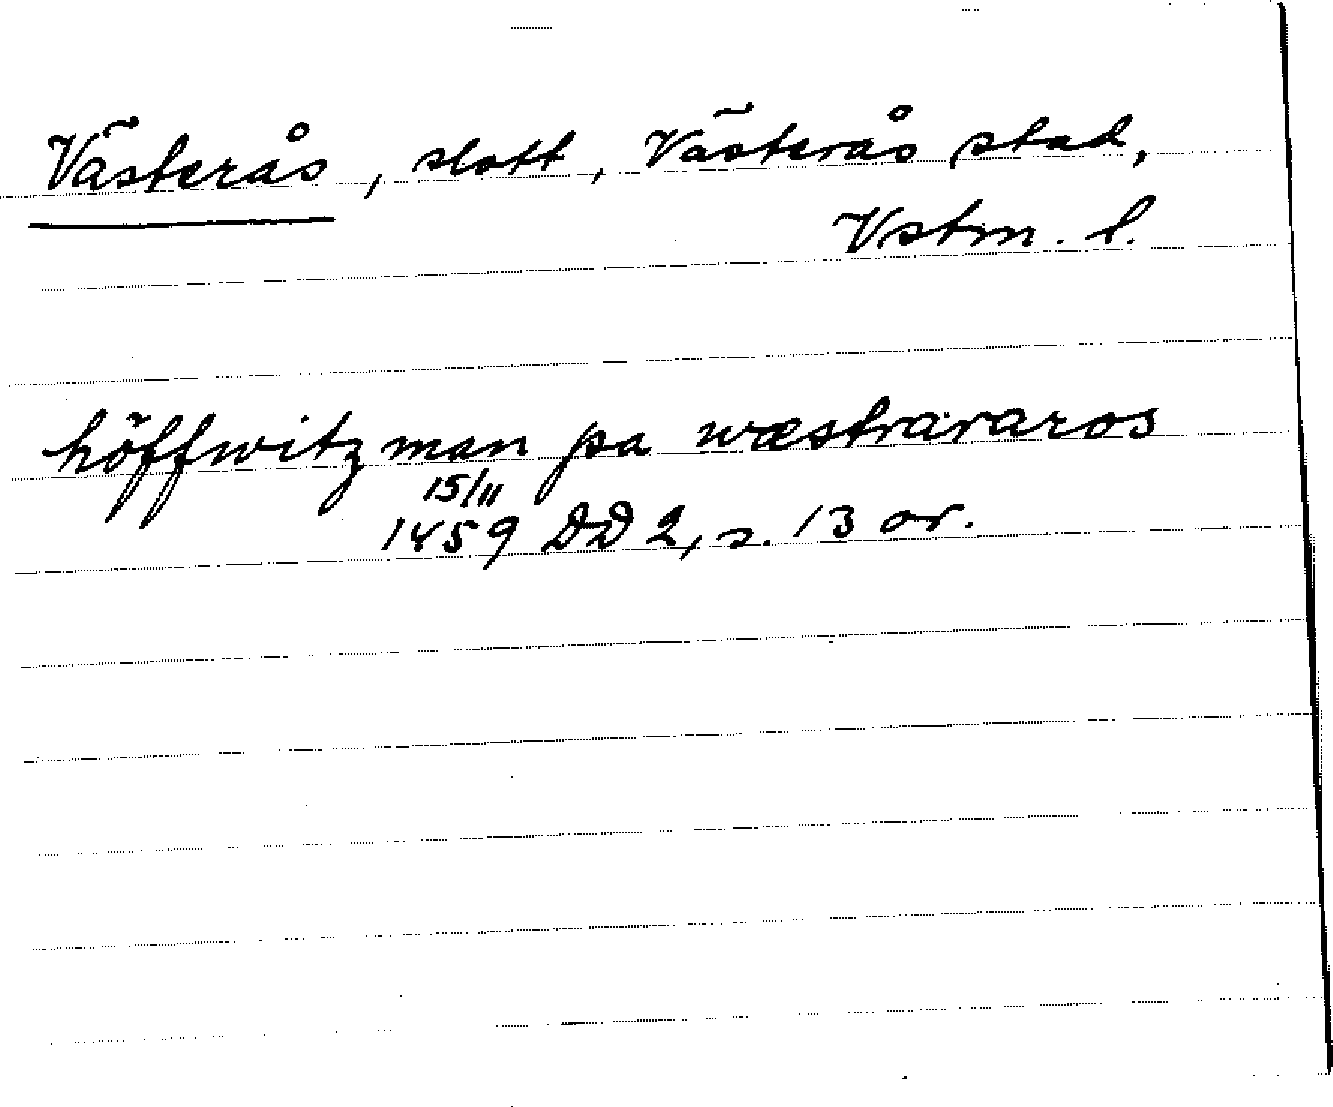 Västerås, slott, Västerås stad,
Vstm. l.
höffwitzman pa wæstrararos
15/11
1459 DD 2, s. 13 or.